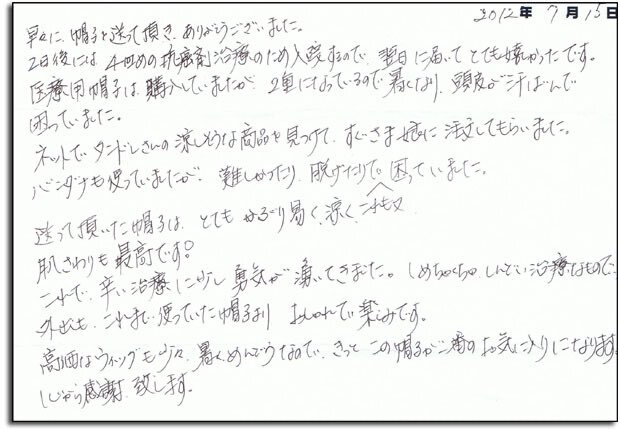 2012年 7月 15日
早々に、帽子を送って頂き、ありがとうございました。
2日後には、4回めの抗癌剤治療のため入院するので、翌日に届いてとても嬉しかったです。
医療用帽子は、購入していましたが、2重になっているので、暑くなり、頭皮が汗ばんで
困っていました。
ネットで、タンドレさんの涼しそうな商品を見つけて、すぐさま娘に注文してもらいました。
バンダナも使っていましたが、難しかったり、脱げたりで困っていました。
送って頂いた帽子は、とてもかぶり易く、涼く、これも又
肌さわりも最高です。
これで、辛い治療に少し勇気が湧いてきました。しめちゃくちゃ、しんどい治療なもので
外出も、これまで使っていた帽子より おしゃれで楽しみです。
高価なウィッグも少々、暑くめんどうなので、きっとこの帽子が一番のお気に入りになります
心から感謝致します。